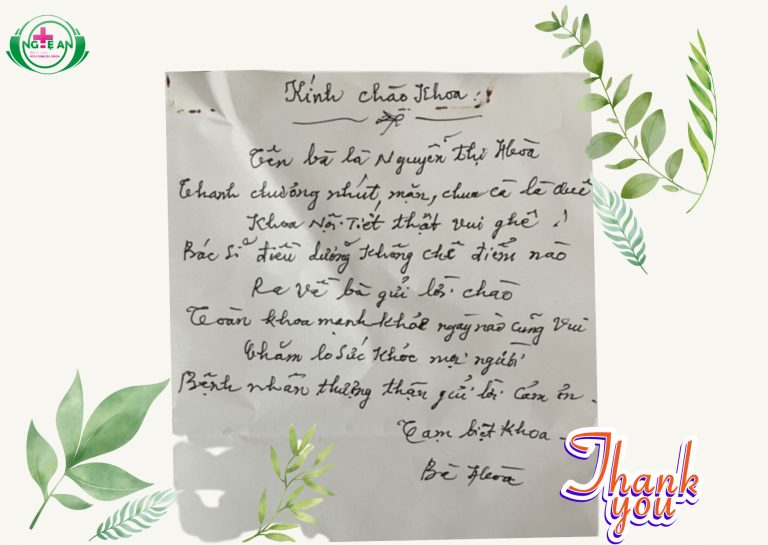 NGHỆ AN
Kính chào Khoa:
Tên bà là Nguyễn thị Hoà
Thanh chương nhút, mặn, chua cà là quê
Khoa Nội-Tiết thật vui ghê!
Bác Sĩ điều dưỡng không chê điểm nào
Ra Về bà gửi lời chào
Toàn khoa mạnh khoẻ ngày nào cũng vui
Chăm lo Sức khỏe mọi người
Bệnh nhân thượng thận gửi lời cảm ơn.
Tạm biệt Khoa.
Bà Hoà
Thank
you